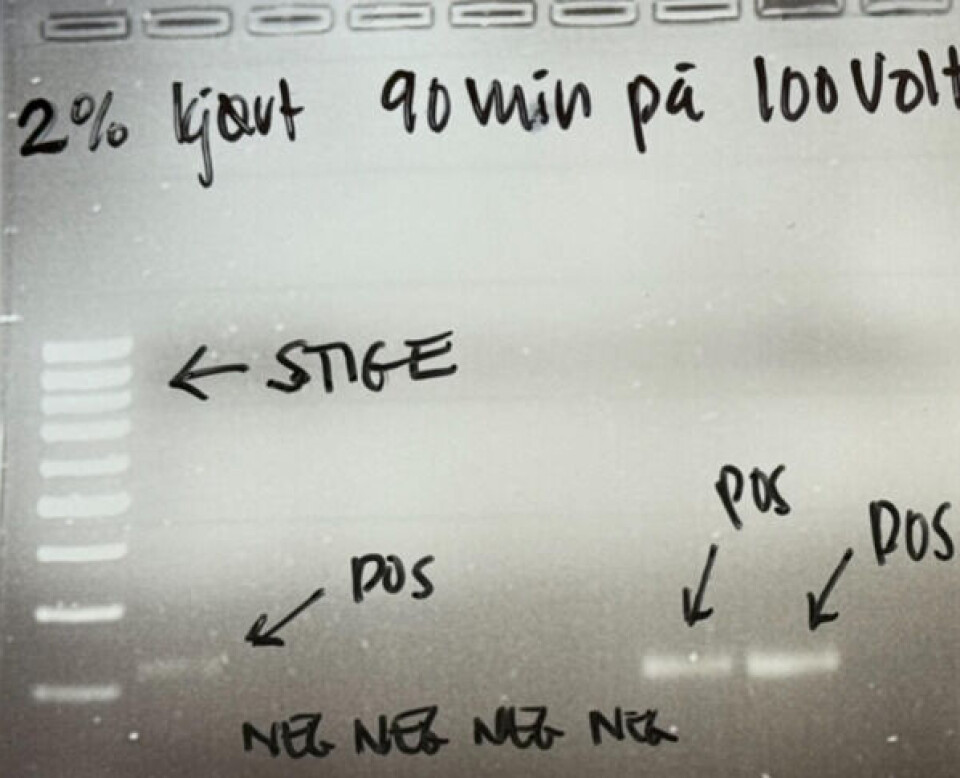 2% kjørt 90 min på 100 Volt
← STIGE
POS
POS
POS
NEG NEG NEG NEG